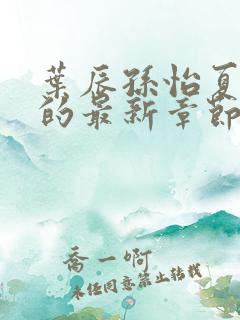 葉辰孫怡夏
的最新章節
喬一啊
未經同意禁止轉載